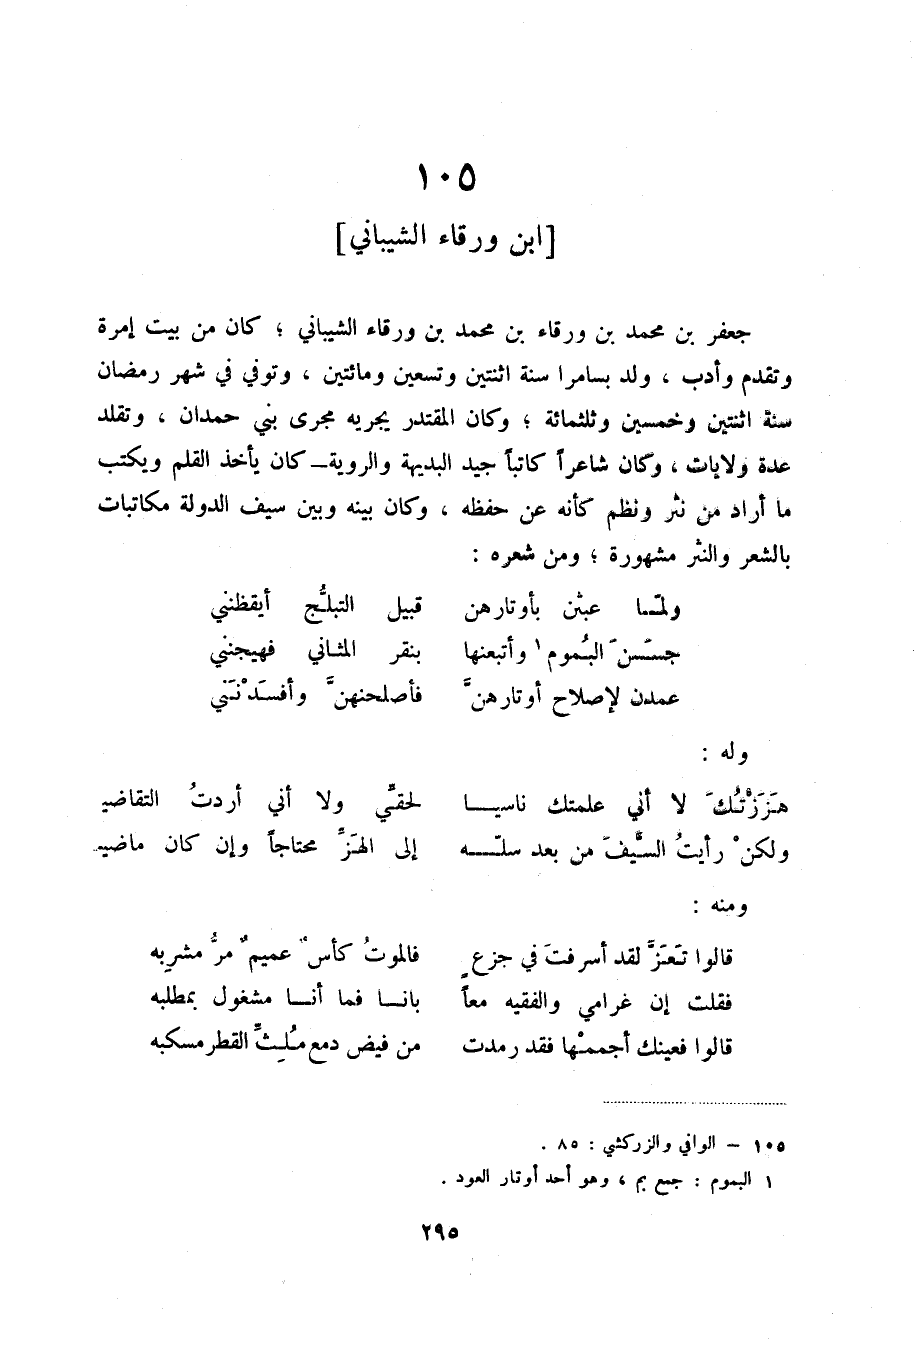 ١٠٥
[ابن ورقاء الشيباني]
جعفر بن محمد بن ورقاء بن محمد بن ورقاء الشيباني ؛ كان من بيت إمرة
وتقدم وأدب ، ولد بسامرا سنة اثنتين وتسعين ومائتين ، وتوفي في شهر رمضان
سنة اثنتين وخمسين وثلثمائة ؛ وكان المقتدر يجريه مجرى بني حمدان ، وتقلد
عدة ولايات ، وكان شاعراً كاتباً جيد البديهة والروية ــ كان يأخذ القلم ويكتب
ما أراد من نثر ونظم كأنه عن حفظه ، وكان بينه وبين سيف الدولة مكاتبات
بالشعر والنثر مشهورة ؛ ومن شعره :
ولمّــا عبثن بأوتارهن قبيل التبلُّج أيقظنني
جسَسنَ البُموم١ وأتبعنها بنقر المثـاني فهيجنني
عمدن لإصلاح أوتارهنَّ فأصلحنهنَّ وأفسَدْنَني
وله :
هَزَزْتُكَ لا أني علمتك ناسيــا لحقيِّ ولا أني أردتُ التقاضيـ
ولكنْ رأيتُ السَّيفَ من بعد سلّــه إلى الهَزِّ محتاجاً وإن كان ماضيـ
ومنه :
قالوا تَعَزَّ لقد أسرفتَ في جزعٍ فالموتُ كأسٌ عميمٌ مرُّ مشربِه
فقلت إن غرامي والفقيه معاً بانــا فما أنــا مشغول بمطلبه
قالوا فعينك أجممْها فقد رمدت من فيض دمع مُلِثِّ القطر مسكبه
١٠٥ – الوافي والزركشي : ٨٥ .
١ البموم : جمع بم ، وهو أحد أوتار العود .
٢٩٥